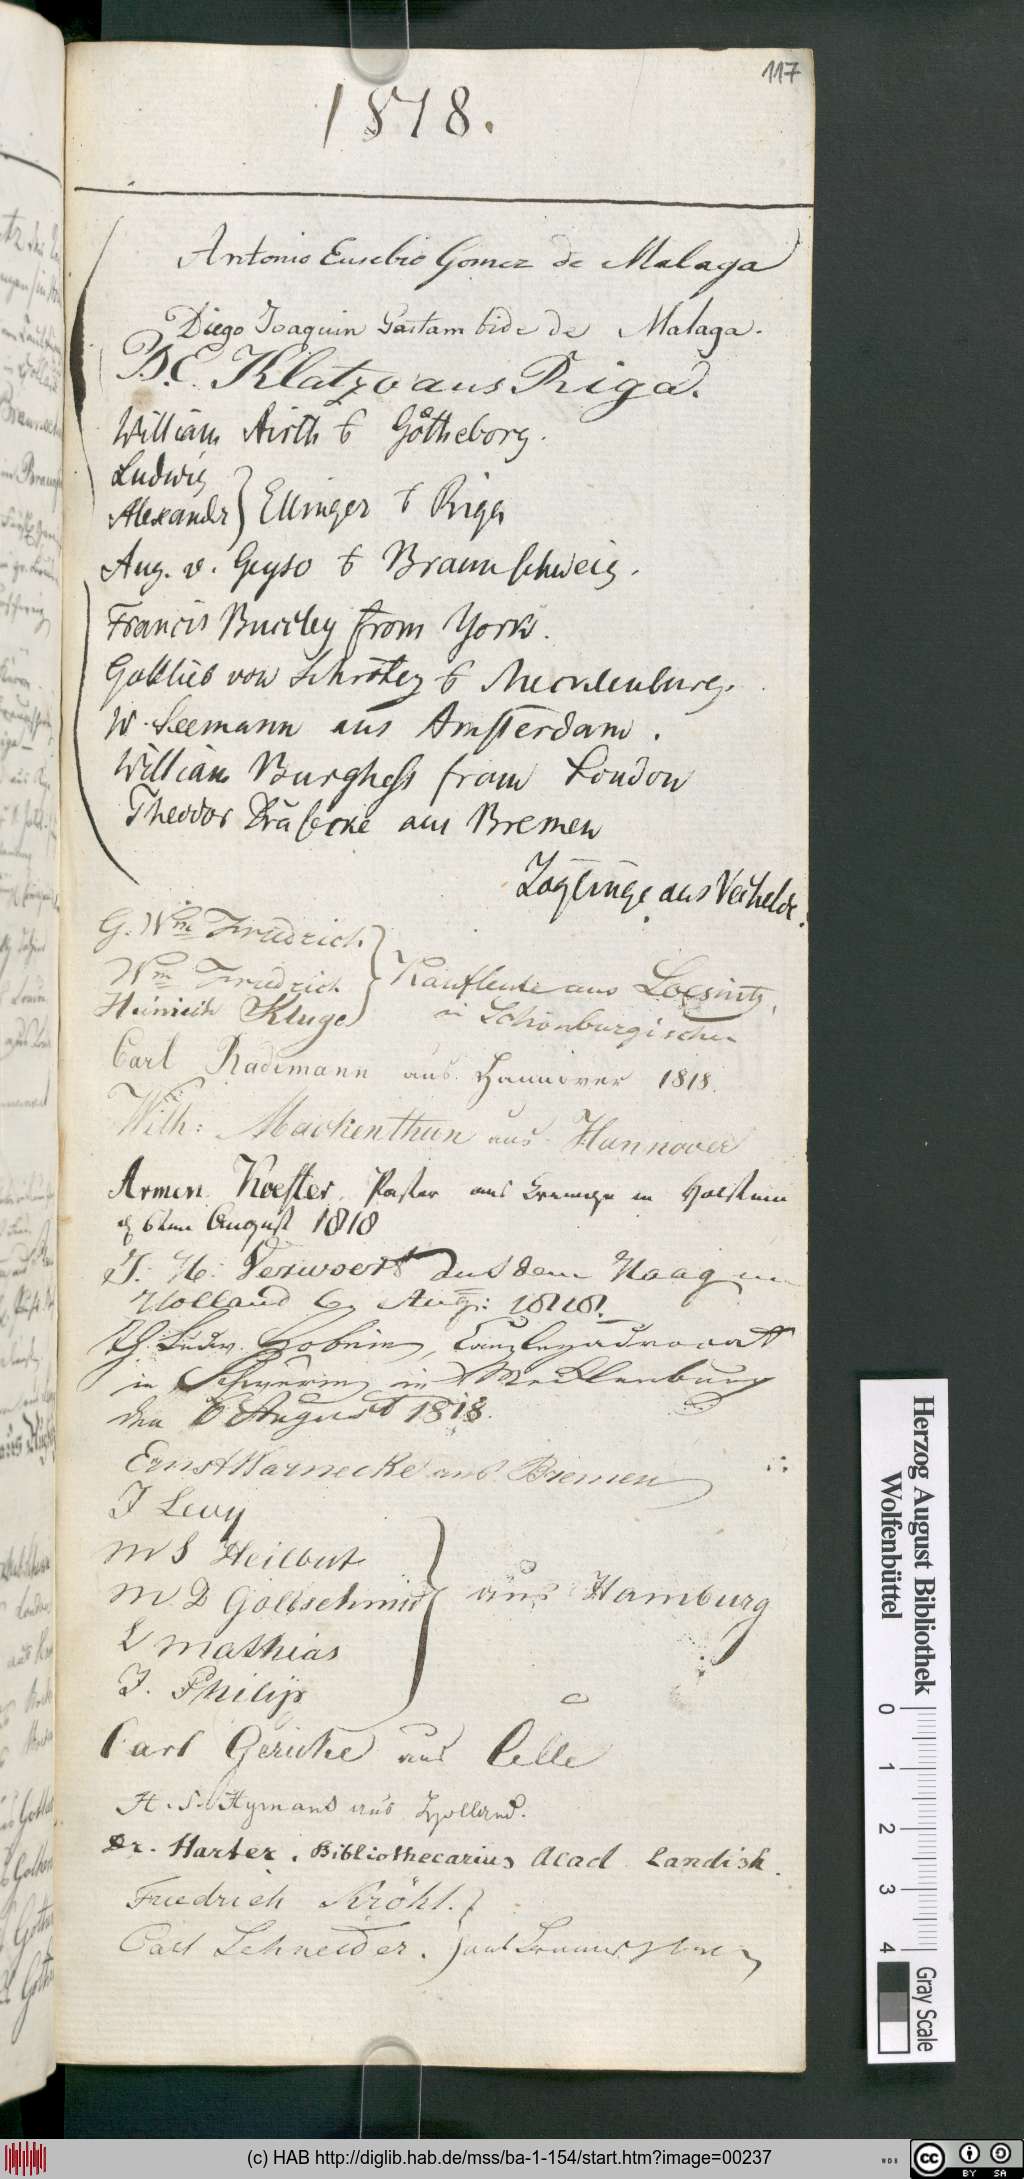 117
1818.
Antonio Eusebio Gomez de Malaga
Diego Joaquin Gaitambide de Malaga.
D. C. Klatzo aus Riga.
William Airth Götheborg.
Ludwig
Alexandr } Ellinger Riga
Aug. v. Geyso Braunschweig.
Francis Burdey from York.
Gottlieb von Mecklenburg.
W. Seemann aus Amsterdam.
William Burghess from London
Theodor aus Bremen
Zöglinge aus Vechelde.
G. Wm Friedrich
Wm Friedrich } Kaufleute aus Loesnitz,
Heinrich Kluge in Schönburgischen
Carl Rademann aus Hannover 1818.
Wilh: Mackenthun aus Hannover
Armin Koester. Pastor aus in Holstein
d 6ten August 1818
J. H. Verwoert aus dem Haag in
Holland 6 Aug: 1818.
Ludw. Canzleyadvocat
in Schwerin in Mecklenburg
den 6 August 1818.
Ernst Warnecke aus Bremen
J Levy
M S Heilbut
M. D Goldschmidt } aus Hamburg
L Mathias
J. Philip
Carl Gericke aus Celle
H. S. Hymans aus Holland.
Dr. Harter. Bibliothecarius Acad Landish.
Friedrich Kröhl.
Carl Schneider.
Herzog August Bibliothek
Wolfenbüttel
0 1 2 3 4
Gray Scale
(c) HAB http://diglib.hab.de/mss/ba-1-154/start.htm?image=00237
WDB
cc BY SA